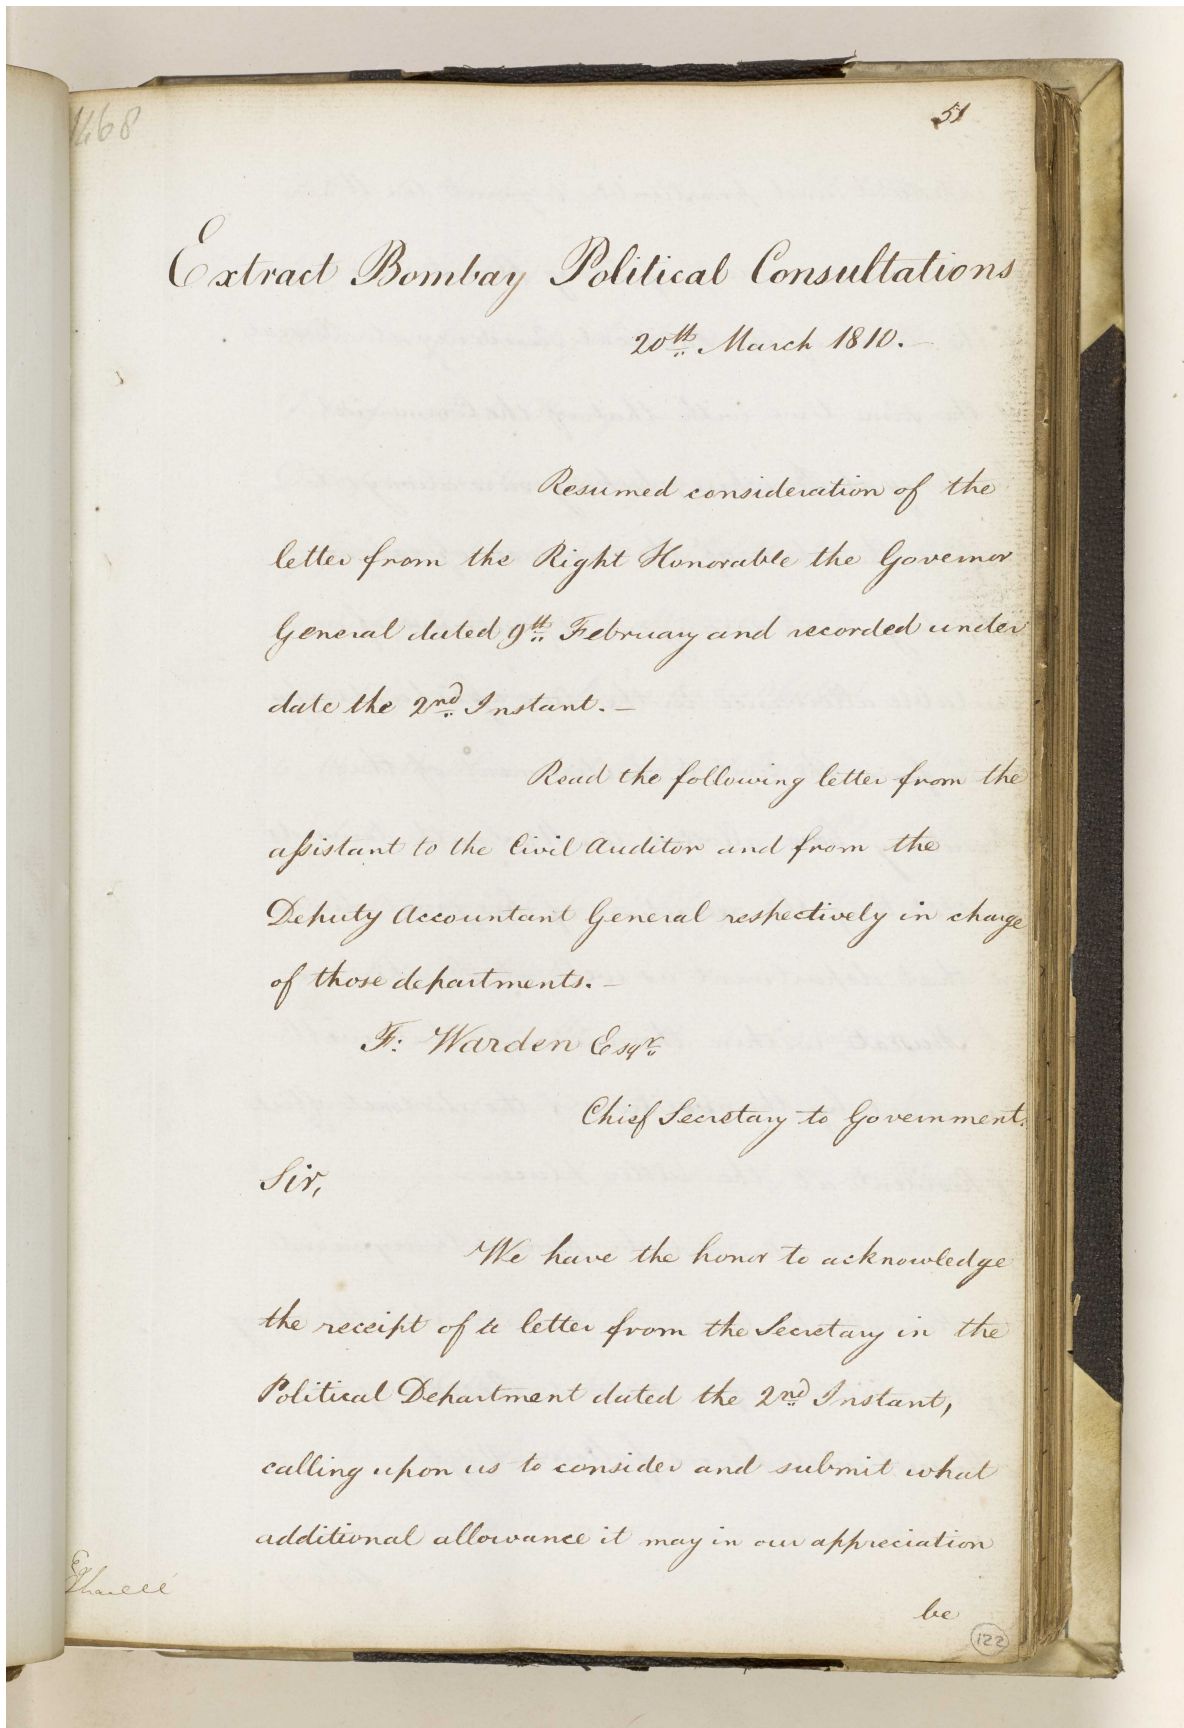 1468
51
Extract Bombay Political Consultations
20th March 1810.
Resumed consideration of the
letter from the Right Honorable the Governor
General dated 9th February and recorded under
date the 2nd Instant. –
Read the following letter from the
assistant to the Civil Auditor and from the
Deputy Accountant General respectively in charge
of those departments. –
F: Warden Esqr.
Chief Secretary to Government.
Sir,
We have the honor to acknowledge
the receipt of a letter from the Secretary in the
Political Department dated the 2nd Instant,
calling upon us to consider and submit what
additional allowance it may in our appreciation
Ex
be
122